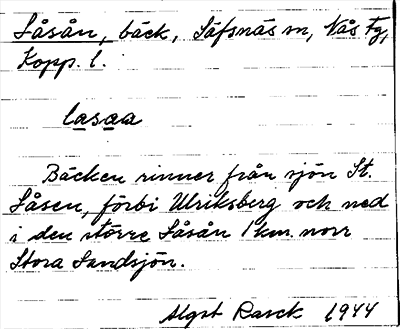 Låsån, bäck, Säfsnäs sn, Nås Fg,
Kopp. l.
lasaa
Bäcken rinner från sjön St.
Låsen, förbi Ulriksberg och ned
i den större Låsån 1 km. norr
Stora Sandsjön.
Algot Rarck 1944